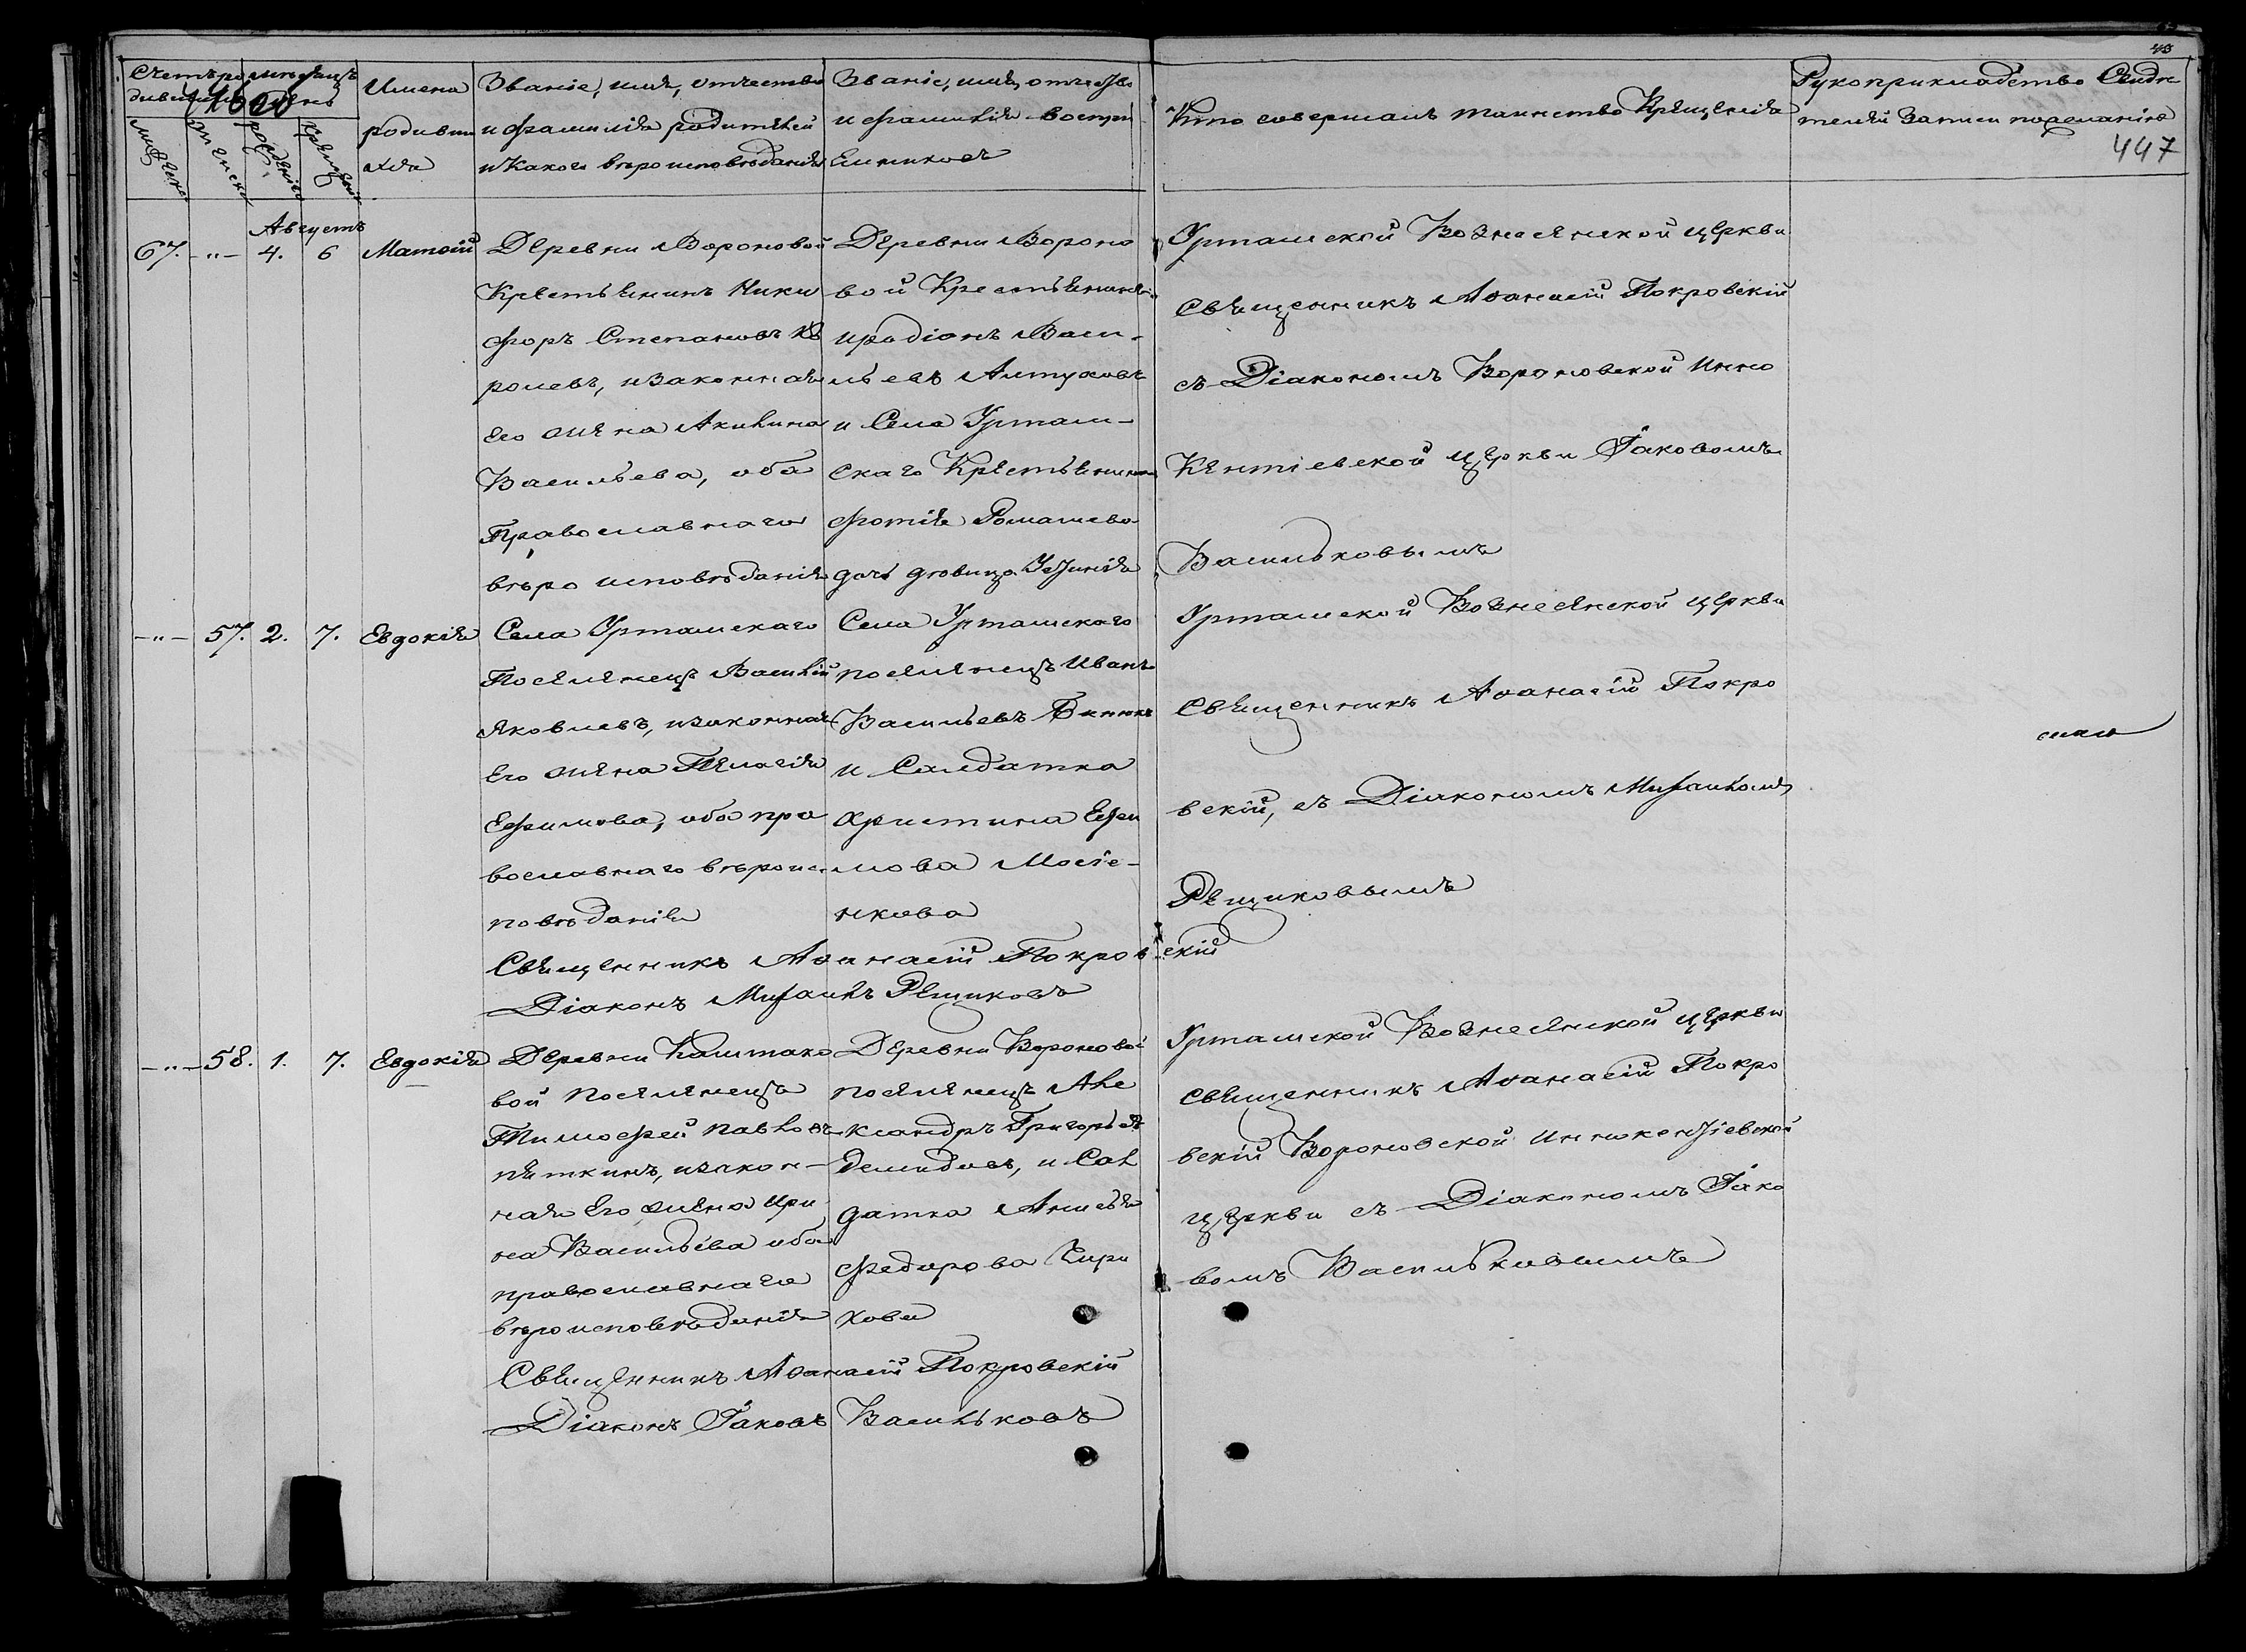 43
Счетъ ро мѣсяцъ
дивш. и день
мужеска
женска
рожденія
крещенія
Имена
родивши
хся
Званіе, имя, отчество
и фамилія родителей
и какого вѣроисповѣданія
Званіе, имя, отчество
и фамилія воспрі
емниковъ
Кто совершалъ таинство Крещенія
Рукоприкладство Свидѣ
телей записи по желанію
447
Августъ
67. -"- 4. 6 Матѳій
Деревни Вороновой
Крестьянинъ Ники
форъ Степановъ Ко
ролевъ, и законная
его жена Акилина
Васильева, оба
Православнаго
вѣро исповѣданія
Деревни Вороно
вой Крестьянинъ
иродіонъ Васи-
льевъ Алтуховъ
и Села Уртам-
скаго Крестьянина
фотія Ромашева
дочь дѣвица
Уртамской Вознесенской церкви
Священникъ Аѳанасій Покровскій
съ Діакономъ Вороновской Инно
Кентіевской церкви Іаковомъ
Васильковымъ
-"- 57. 2. 7. Евдокія
Села Уртамскаго
Поселенецъ Василій
Яковлевъ, и законная
Его жена Пелагія
Ефимова, оба пра
вославнаго вѣроис
повѣданія
Села Уртамскаго
поселенецъ Иванъ
Васильевъ
и Салдатка
Христина Ефи
мова Мосіе-
нкова
Уртамской Вознесенской церкви
Священникъ Аѳанасій Покро
вскій, съ Діакономъ Михаиломъ
Рещиковымъ
Священникъ Аѳанасій Покровскій
Діаконъ Михаилъ Рещиковъ
-"- 58. 1. 7. Евдокія
Деревни Каштако
вой поселенецъ
Тимофей Павловъ
пяткинъ, и закон-
ная Его жена Ири
на Васильева оба
православнаго
вѣроисповѣданія
Деревни Вороновой
поселенецъ Але
ксандръ Григорьевъ
Демидовъ, и Сал
датка Анисья
Федорова Чири
кова
Уртамской Вознесенской церкви
Священникъ Аѳанасій Покро
вскій Вороновской Иннокентіевской
церкви съ Діакономъ Іако
вомъ Васильковымъ
Священникъ Аѳанасій Покровскій
Діаконъ Іаковъ Васильковъ